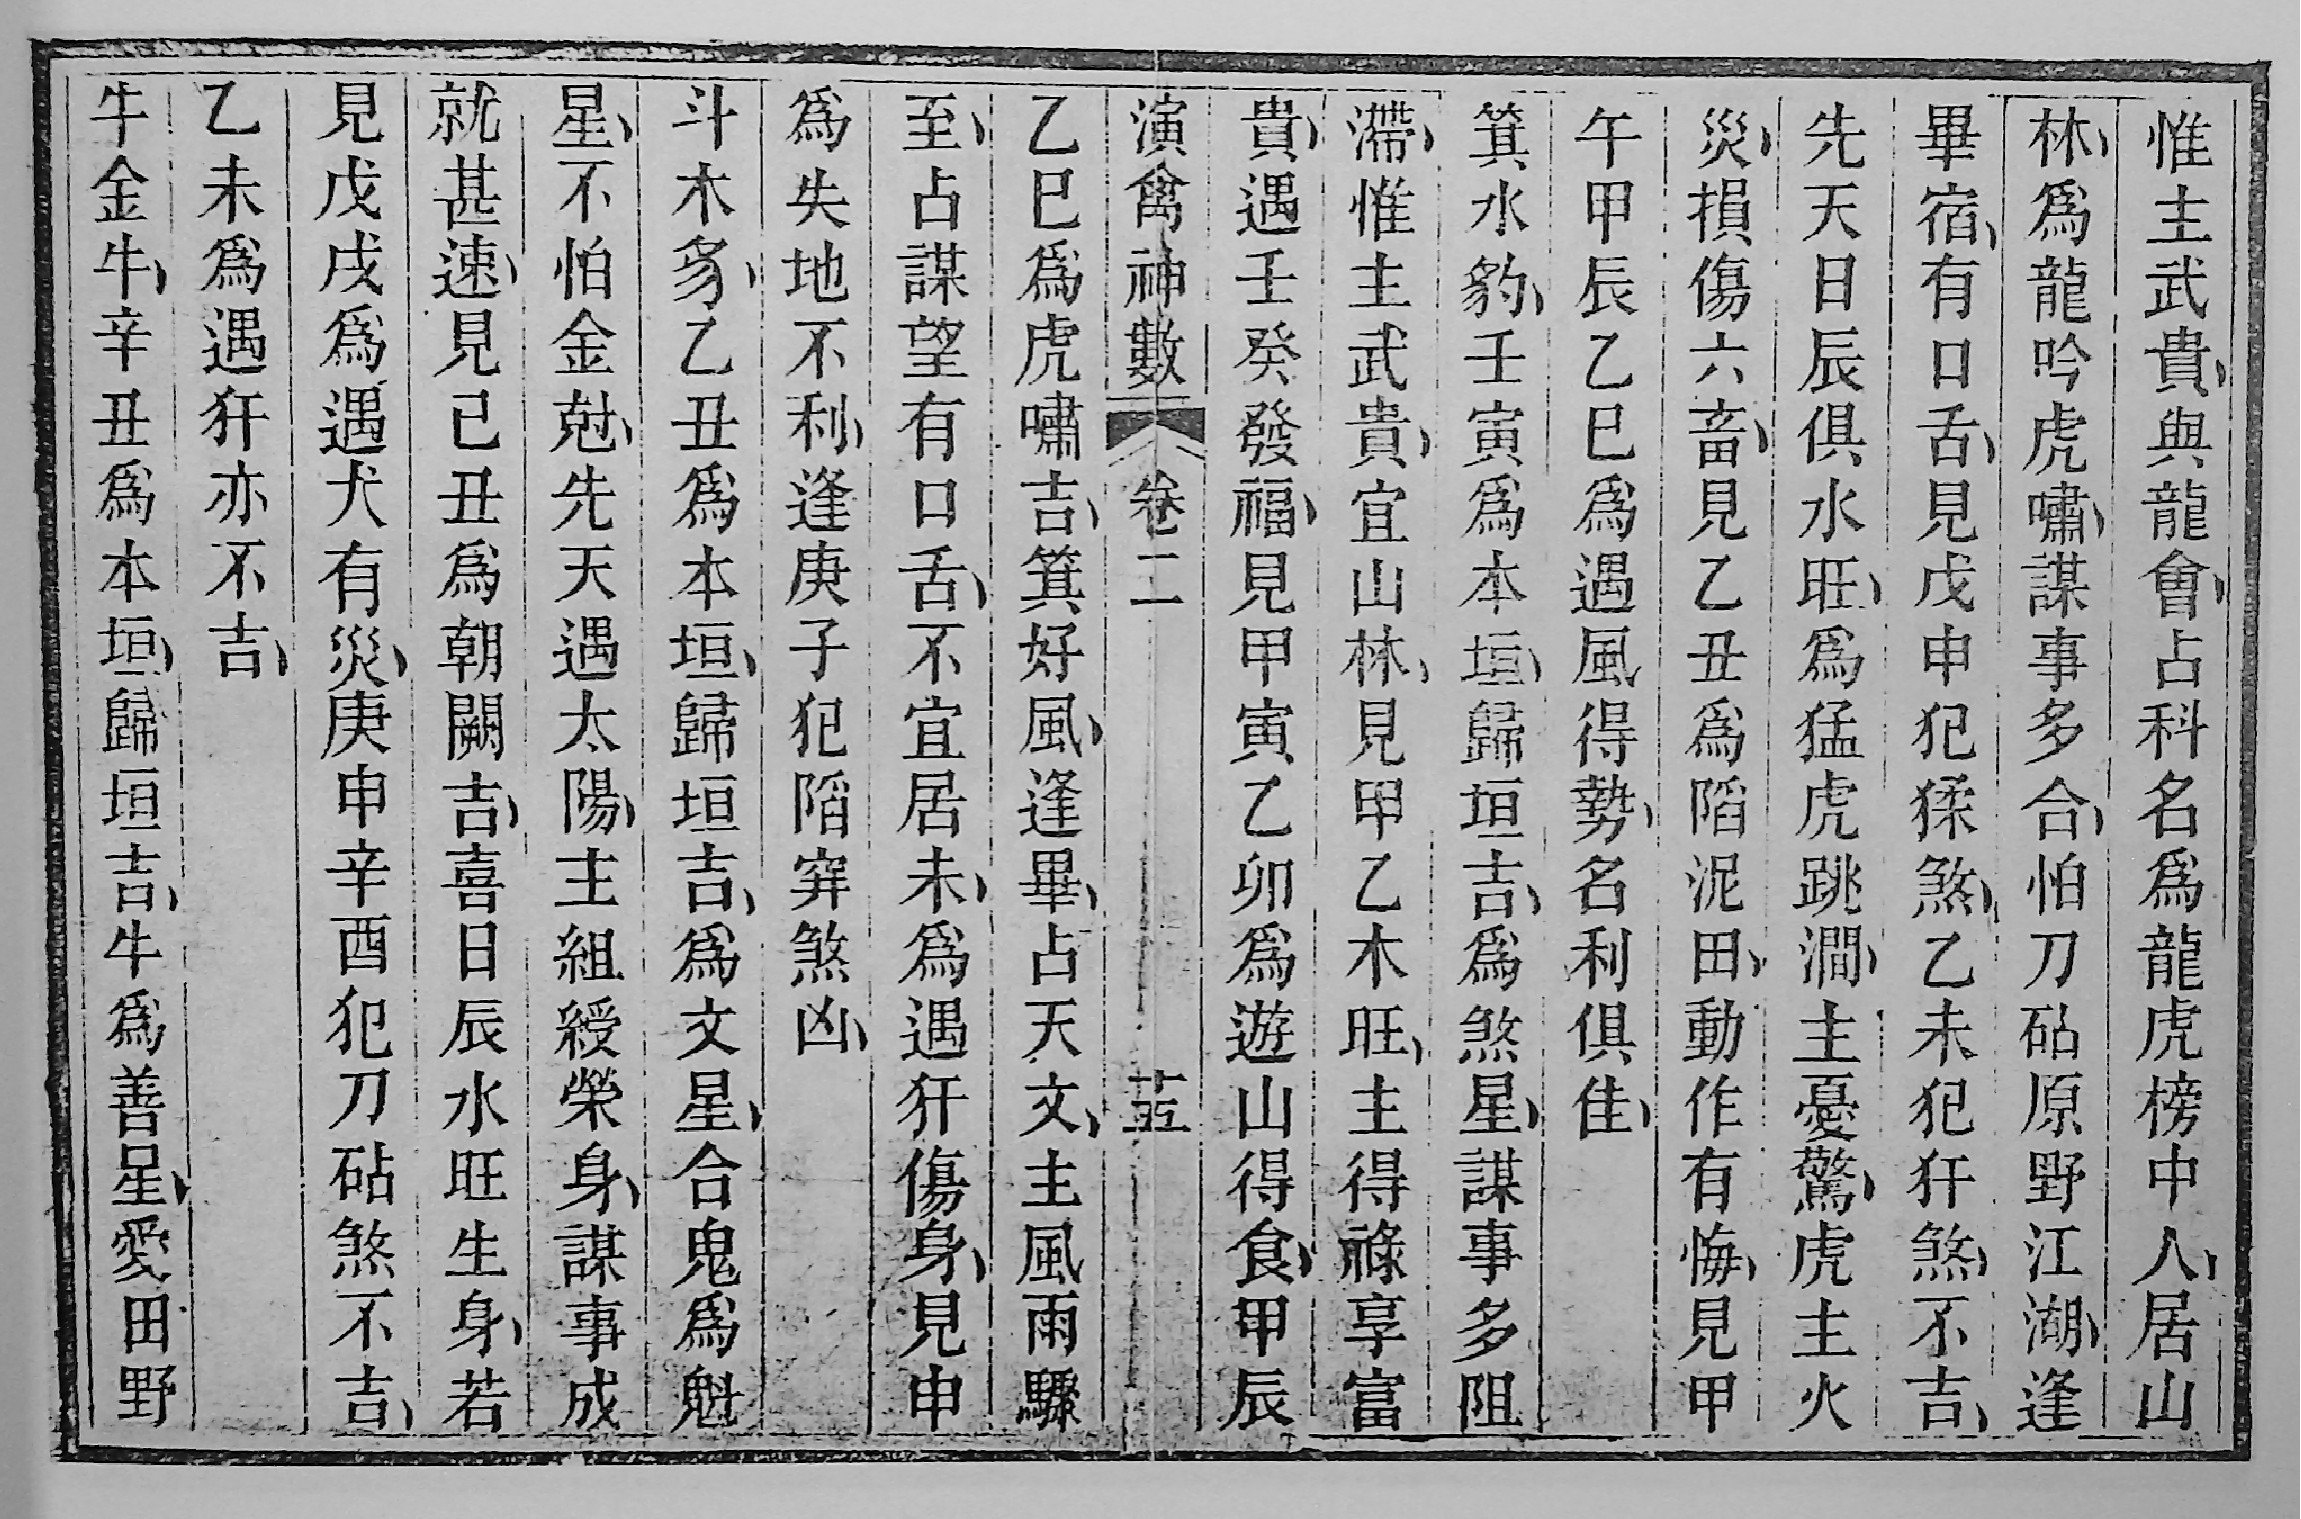 惟主武貴、與龍會、占科名爲龍虎榜中人、居山
林、爲龍吟虎嘯、謀事多合、怕刀砧原野江湖、逢
畢宿、有口舌、見戊申犯猱煞、乙未犯犴煞、不吉、
先天日辰俱水旺、爲猛虎跳澗、主憂驚、虎主火
災、損傷六畜、見乙丑爲陷泥田、動作有悔、見甲
午甲辰乙巳爲遇風得勢、名利俱佳、
箕水豹、壬寅爲本垣、歸垣吉、爲煞星、謀事多阻
滯、惟主武貴、宜山林、見甲乙木旺、主得祿享富
貴、遇壬癸發福、見甲寅乙卯爲遊山得食、甲辰
演禽神數 卷二 十五
乙巳爲虎嘯吉、箕好風、逢畢、占天文、主風雨驟
至、占謀望有口舌、不宜居未、爲遇犴傷身、見申
爲失地不利、逢庚子犯陷穽煞凶、
斗木豸、乙丑爲本垣、歸垣吉、爲文星、合鬼爲魁
星、不怕金尅、先天遇太陽、主組綬榮身、謀事成
就甚速、見己丑爲朝闕吉、喜日辰水旺生身、若
見戊戌爲遇犬有災、庚申辛酉犯刀砧煞不吉、
乙未爲遇犴亦不吉、
牛金牛、辛丑爲本垣、歸垣吉、牛爲善星、愛田野